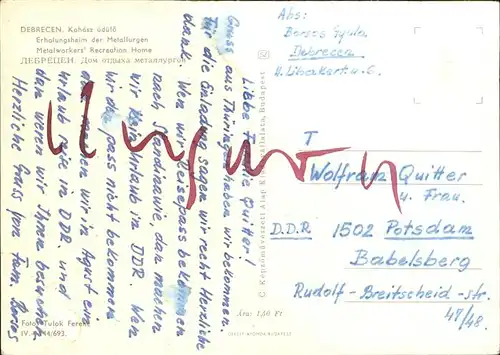 DEBRECEN. Kohász üdülő
Erholungsheim der Metallurgen
Metalworkers' Recreation Home
ДЕБРЕЦЕН. Дом отдыха металлургов
Liebe Familie Quitter!
Gruss aus Thüringen haben wir bekommen.
Für die Einladung sagen wir recht Herzliche
dank. Wen wir Reisepass bekommen
nach Skandinawie, dan machen
wir kein Urlaub in DDR. Wen
wir den pass nicht bekommen
dan machen wir in August eine
Urlaub reise in DDR und
dan weren wir Ihnen besuchen
Herzliche Gruss von fam. Borsos
Foto: Tulok Ferenc
Ára: 1,50 Ft
C Képzőművészeti Alap Kiadóvállalata, Budapest
Abs:
Borsos Gyula
Debrecen
u. 6.
T
Wolfram Quitter
u. Frau.
D.D.R 1502 Potsdam
Babelsberg
Rudolf-Breitscheid-str.
47/48.